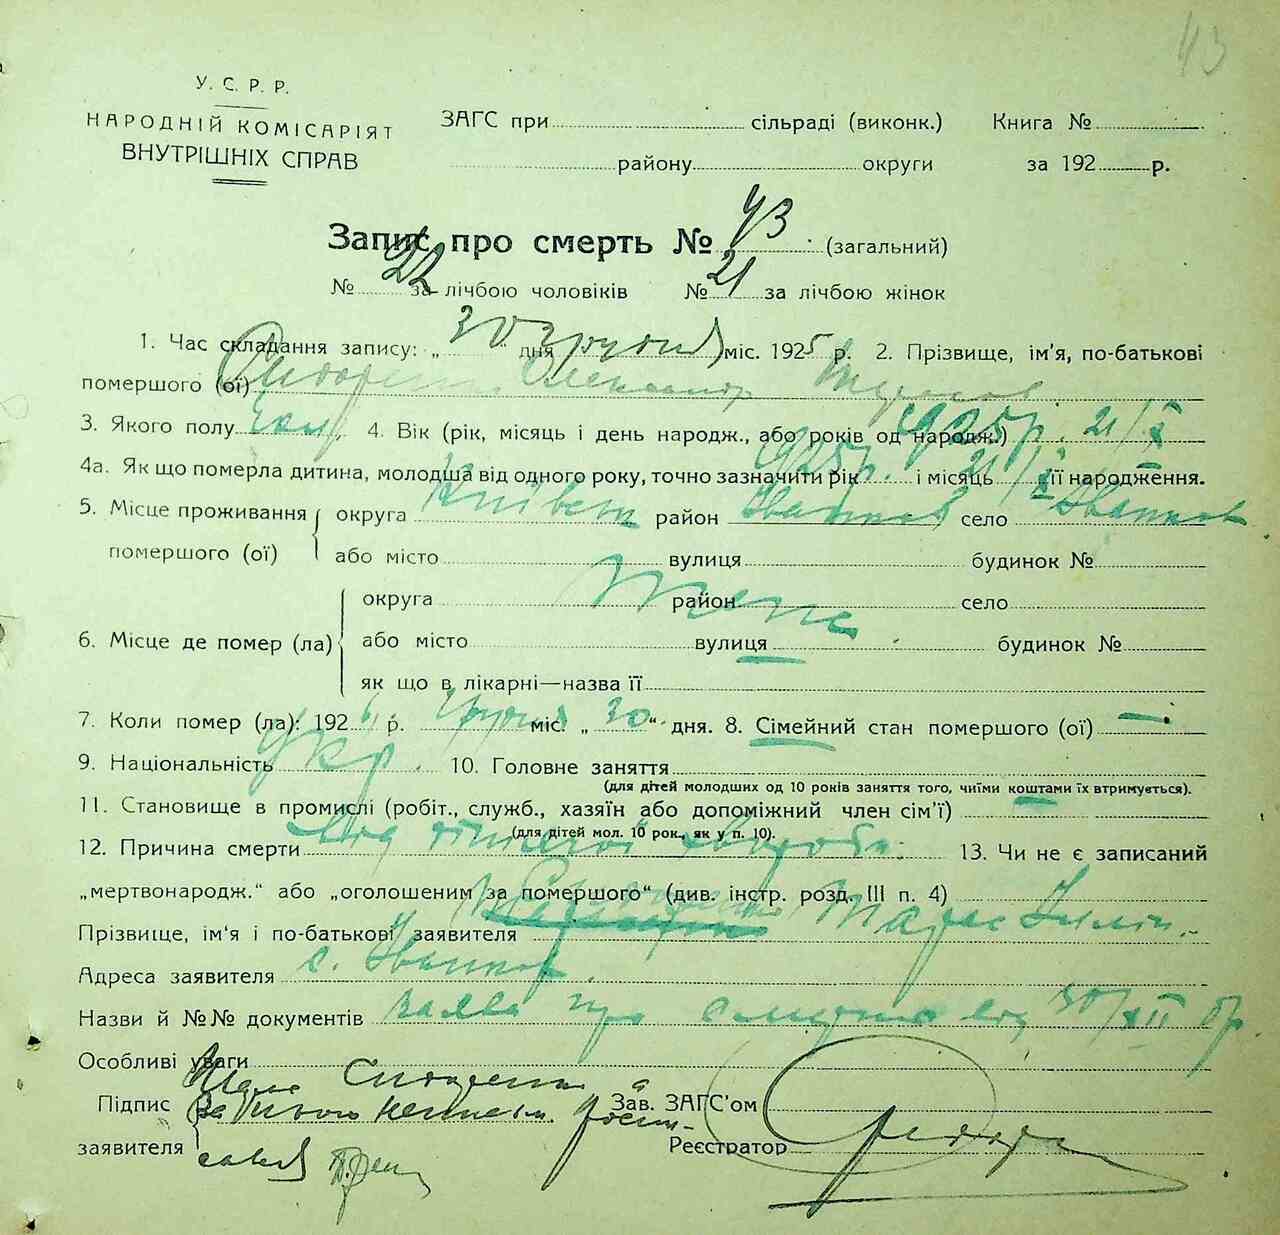 43
У. С. Р. Р.
НАРОДНІЙ КОМІСАРІЯТ
ВНУТРІШНІХ СПРАВ
ЗАГС при сільраді (виконк.) Книга №
району округи за 192 р.
Запис про смерть № 43 (загальний)
№ 22 за лічбою чоловіків № 21 за лічбою жінок
1. Час складання запису: „30“ дня грудня міс. 1925 р. 2. Прізвище, ім'я, по-батькові
помершого (ої) Олександр Тарасов
3. Якого полу 4. Вік (рік, місяць і день народж., або років од народж.) 1925 р. 21/X
4а. Як що померла дитина, молодша від одного року, точно зазначити рік 925 р. і місяць 21/X її народження.
5. Місце проживання помершого (ої) округа Київськ район Іванков село Іванков
або місто вулиця будинок №
6. Місце де помер (ла) округа район село
або місто вулиця будинок №
як що в лікарні—назва її
7. Коли помер (ла): 192 р. грудня міс. „30“ дня. 8. Сімейний стан помершого (ої) —
9. Національність Укр. 10. Головне заняття
(для дітей молодших од 10 років заняття того, чиїми коштами їх втримується).
11. Становище в промислі (робіт., служб., хазяїн або допоміжний член сім'ї)
(для дітей мол. 10 рок., як у п. 10).
12. Причина смерти Від хвороби. 13. Чи не є записаний
„мертвонародж.“ або „оголошеним за помершого“ (див. інстр. розд. III п. 4)
Прізвище, ім'я і по-батькові заявителя Тарас
Адреса заявителя с. Іванков
Назви й №№ документів заява про смерть від 30/XII 5 р
Особливі уваги
Підпис заявителя
Зав. ЗАГС'ом
Реєстратор